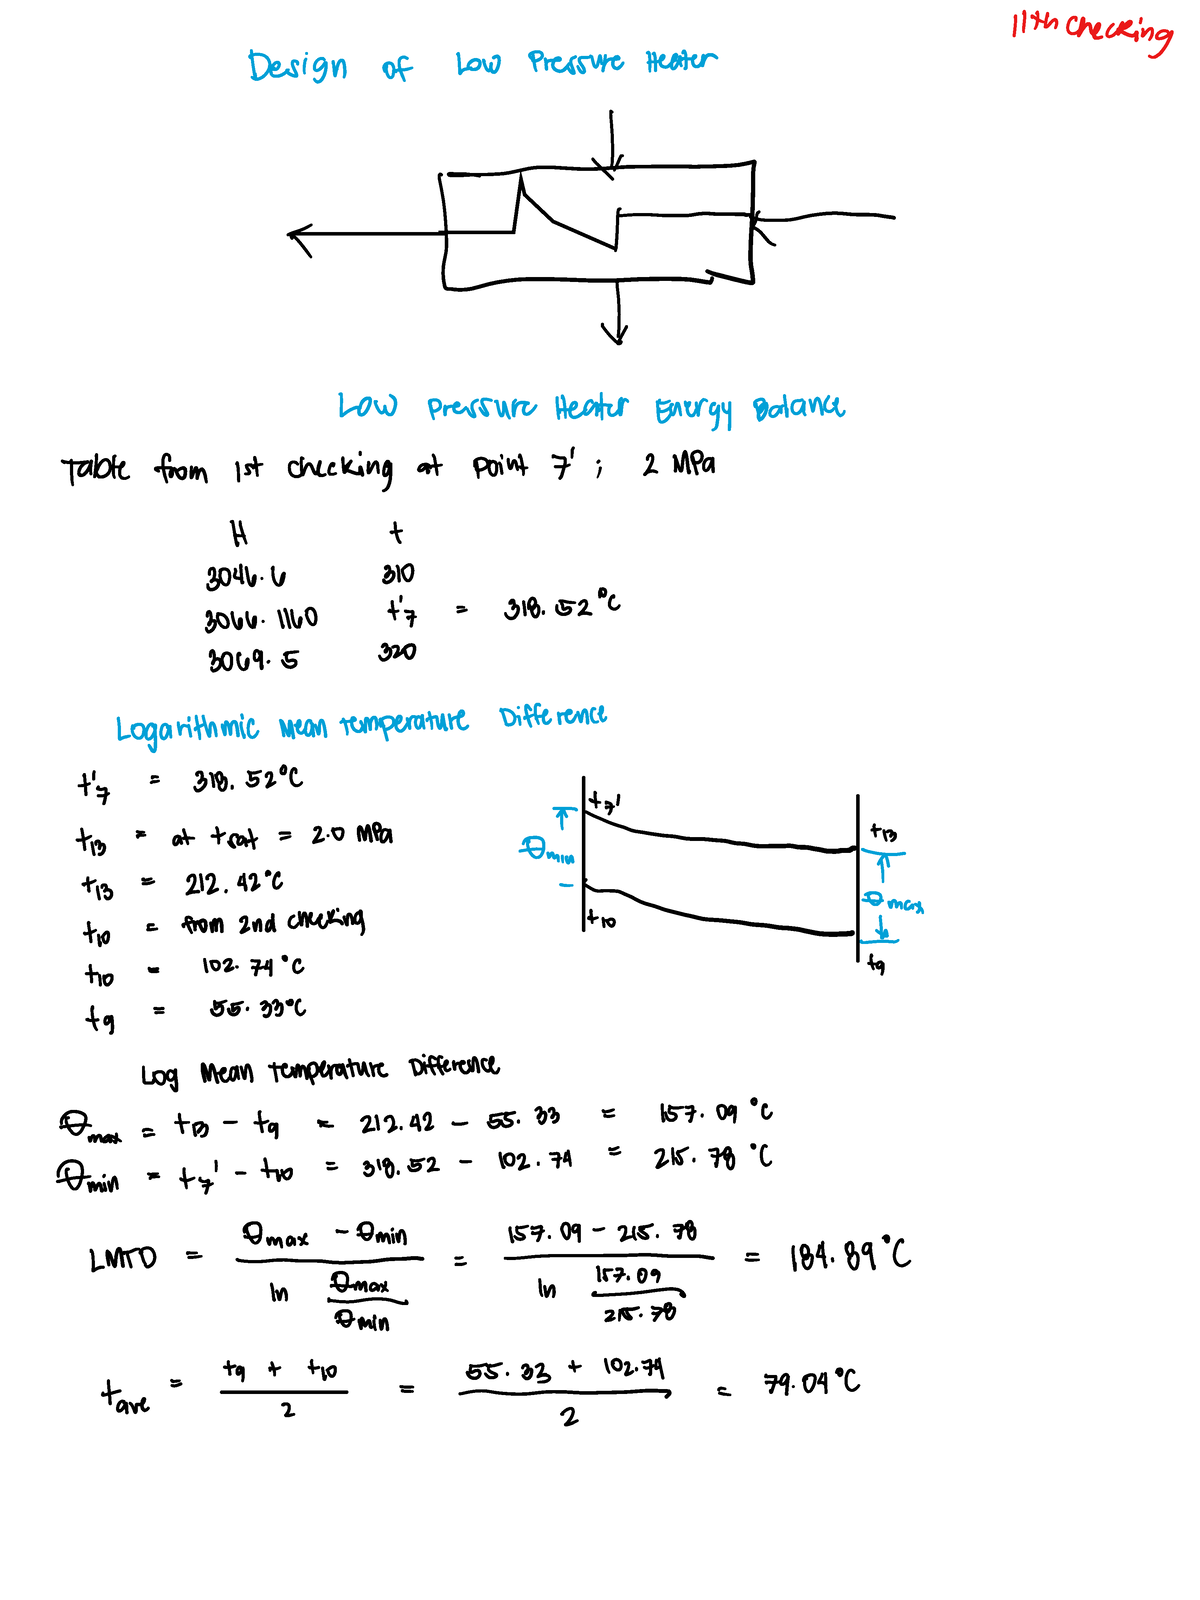 11th checking
Design of Low Pressure Heater
Low Pressure Heater Energy Balance
Table from 1st checking at point 7' ; 2 MPa
H t
3046.6 310
3066.1160 t'7 = 318.52°C
3069.5 320
Logarithmic Mean Temperature Difference
t'7 = 318.52°C
t13 = at tsat = 2.0 MPa
t13 = 212.42°C
t10 = from 2nd checking
t10 = 102.74°C
t9 = 55.33°C
t7'
θmin
t10
t13
θmax
t9
Log Mean Temperature Difference
θmax = t13 - t9 = 212.42 - 55.33 = 157.09 °C
θmin = t7' - t10 = 318.52 - 102.74 = 215.78 °C
LMTD = θmax - θmin / ln θmax/θmin = 157.09 - 215.78 / ln 157.09/215.78 = 184.89°C
tave = t9 + t10 / 2 = 55.33 + 102.74 / 2 = 79.04°C